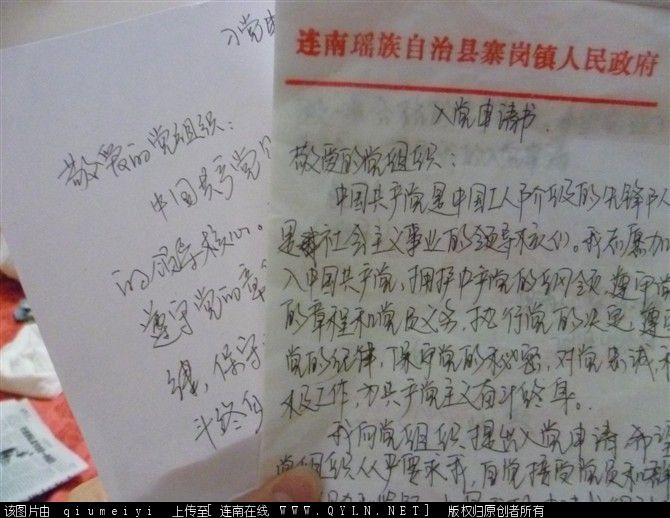 入党申
敬爱的党组织：
中国共产党
的领导核心。
遵守党的章
线，保守
斗终身
连南瑶族自治县寨岗镇人民政府
入党申请书.
敬爱的党组织：
中国共产党是中国工人阶级的先锋队人
是社会主义事业的领导核心。我志愿加
入中国共产党，拥护共产党的纲领，遵守党
的章程和党员义务，执行党的决定，遵守
党的纪律，保守党的秘密，对党忠诚，积
极工作，为共产党主义奋斗终身。
我向党组织提出入党申请，希望
党组织从严要求我，自觉接受党员和群
该图片由 qiumeiyi 上传至[ 连南在线 WWW.QYLN.NET] 版权归原创者所有